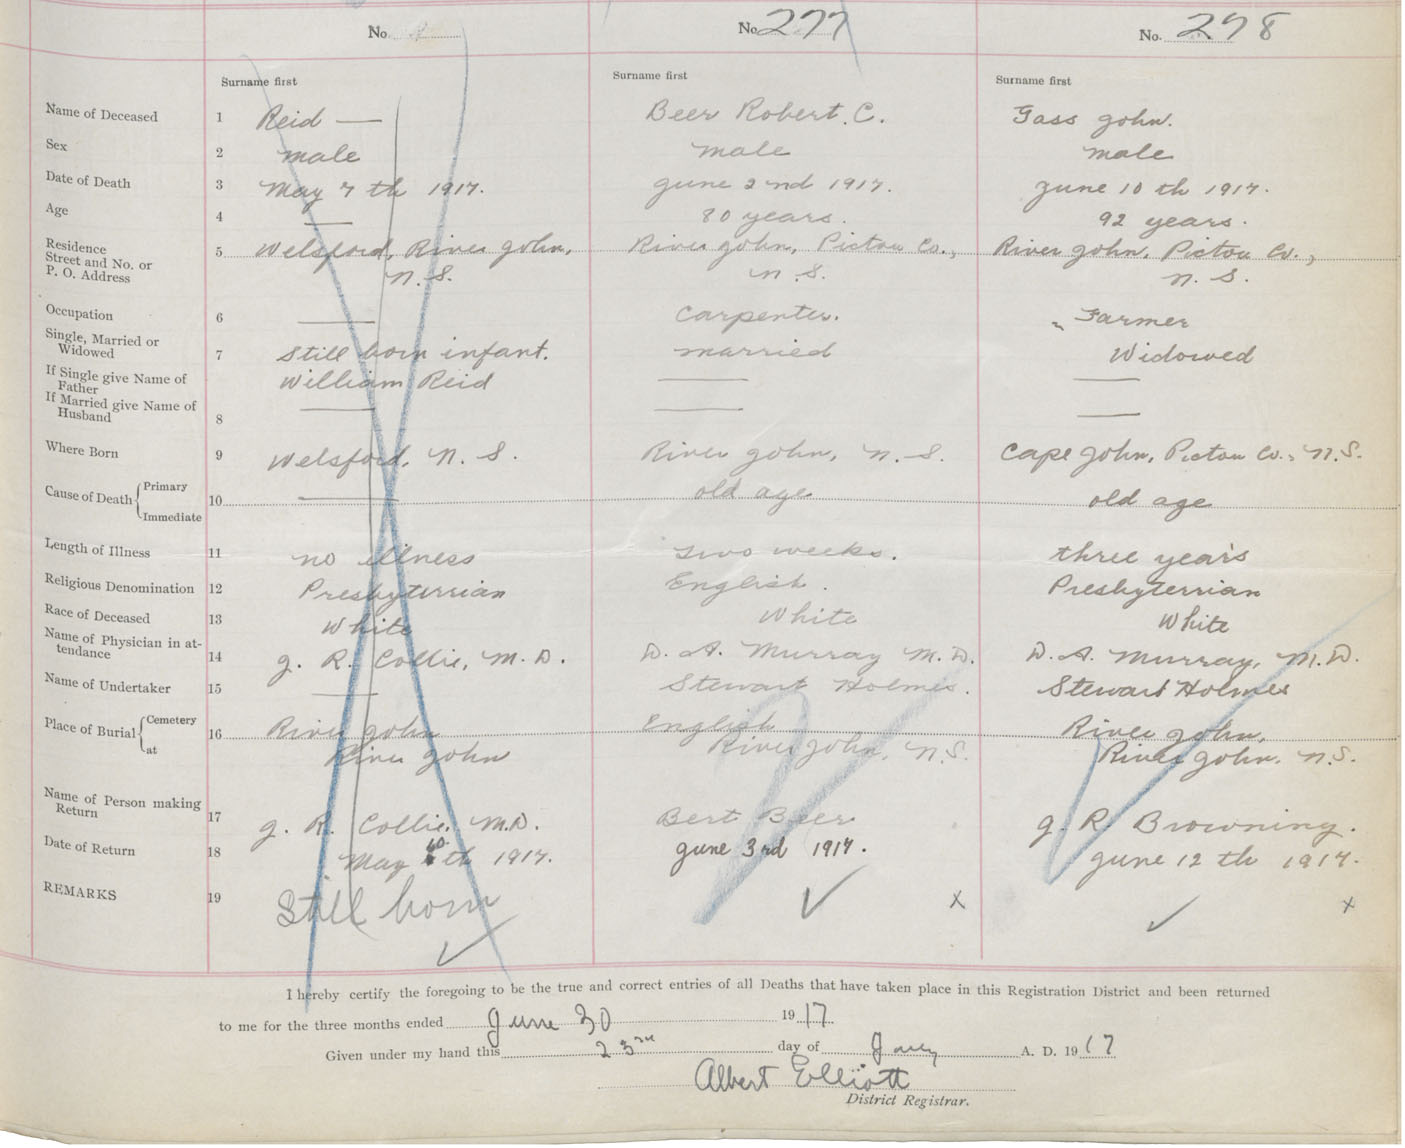 No.
No. 277
No. 278
Surname first
Surname first
Surname first
Name of Deceased 1 Reid — Beer Robert. C. Gass John.
Sex 2 male male male
Date of Death 3 May 7th 1917. June 2nd 1917. June 10th 1917.
Age 4 — 80 years. 92 years.
Residence
Street and No. or 5 Welsford, River John, River John, Pictou Co., River John, Pictou Co.,
P. O. Address N.S. N.S. N.S.
Occupation 6 — Carpenter. Farmer
Single, Married or
Widowed 7 Still born infant. married Widowed
If Single give Name of
Father William Reid — —
If Married give Name of
Husband 8 — — —
Where Born 9 Welsford, N.S. River John, N.S. Cape John, Pictou Co., N.S.
Cause of Death { Primary
10 — old age old age
Immediate
Length of Illness 11 no illness two weeks. three years
Religious Denomination 12 Presbyterrian English. Presbyterrian
Race of Deceased 13 White White White
Name of Physician in at-
tendance 14 J. R. Collie, M.D. D. A. Murray M.D. D. A. Murray, M.D.
Name of Undertaker 15 — Stewart Holmes. Stewart Holmes
Place of Burial { Cemetery
16 River John English River John,
at River John River John, N.S. River John. N.S.
Name of Person making
Return 17 J. R. Collie, M.D. Bert Beer J. R. Browning.
Date of Return 18 May 10th 1917. June 3rd 1917. June 12th 1917.
REMARKS 19 Still born ✓ ✓ x ✓ x
I hereby certify the foregoing to be the true and correct entries of all Deaths that have taken place in this Registration District and been returned
to me for the three months ended June 30 1917
Given under my hand this 23rd day of A. D. 1917
Albert Elliott
District Registrar.